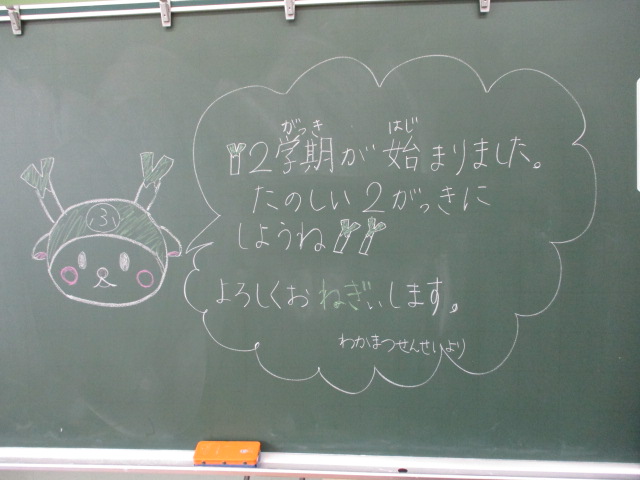 2学期が始まりました。
たのしい2がっきに
しようね
よろしくおねぎぃします。
わかまつせんせいより
ふ
がっき
はじ